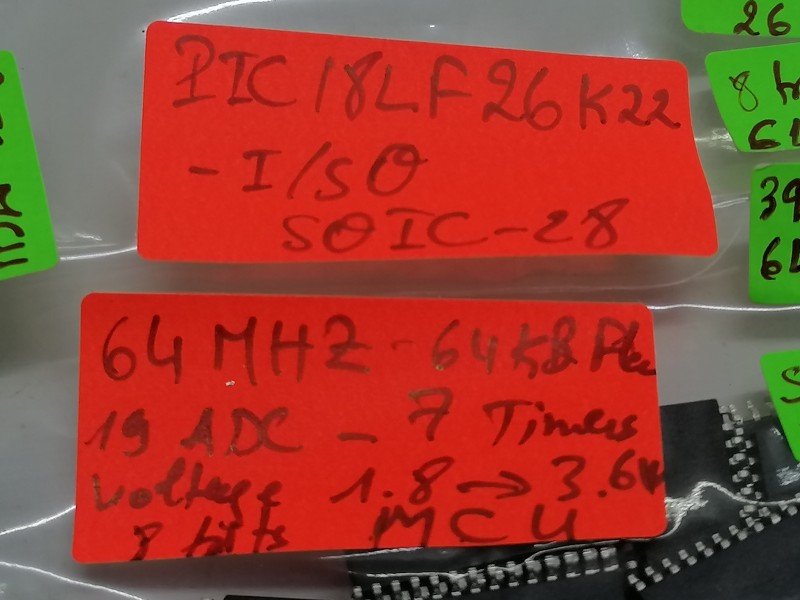 PIC18LF26K22
-I/SO
SOIC-28
64MHZ - 64KB Fla
19 ADC - 7 Timers
Voltage 1.8 → 3.6V
8 bits MCU
26
8
6
39
6
S